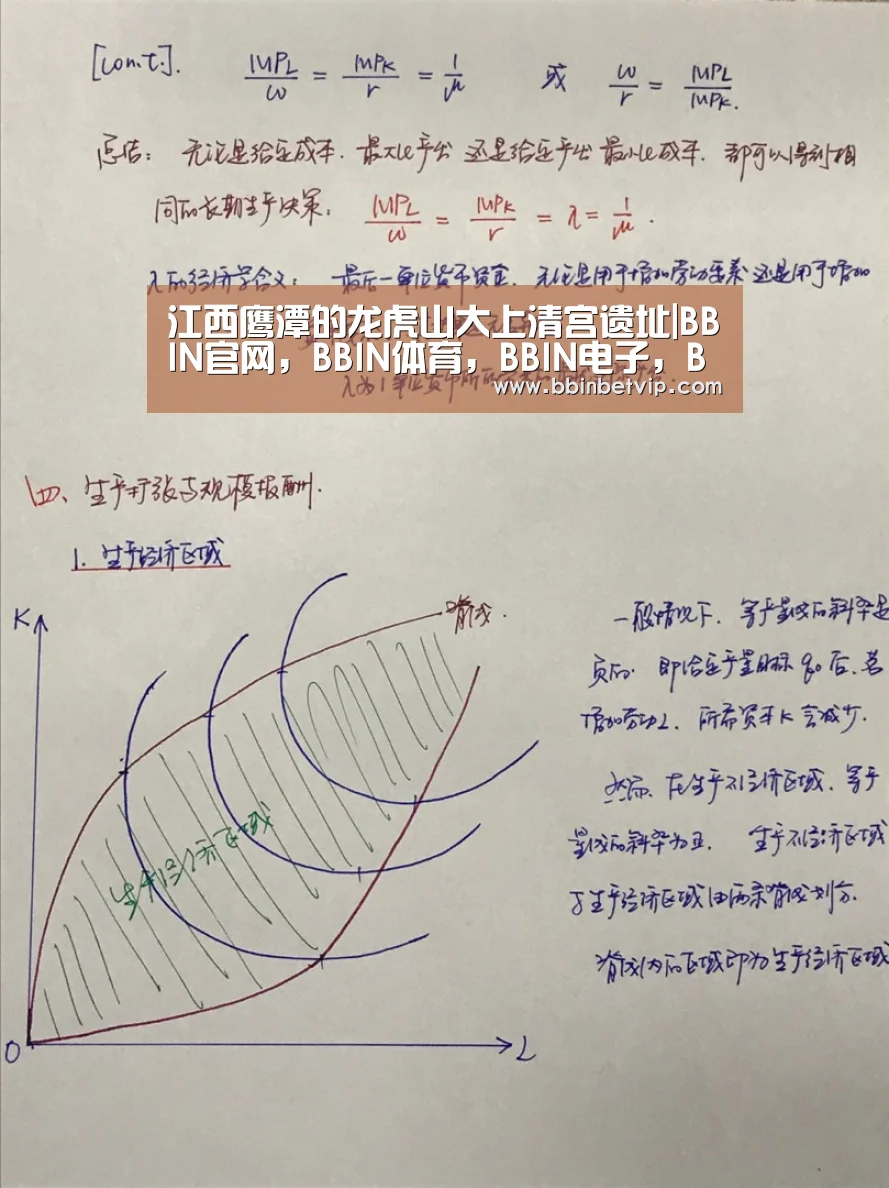 [Con.t.]. MPL/ω = MPK/r = 1/μ 或 ω/r = MPL/MPK.
总结： 无论是给定成本. 最大化产出 还是给定产出 最小化成本. 都可以得到相
同的长期生产决策： MPL/ω = MPK/r = λ = 1/μ .
λ的经济学含义： 最后一单位货币资金. 无论是用于增加劳动要素 还是用于增加
江西鹰潭的龙虎山大上清宫遗址|BB
IN官网，BBIN体育，BBIN电子，B
www.bbinbetvip.com
λ为1单位货币所
四、生产扩张与规模报酬.
1. 生产经济区域
K
脊线.
一般情况下. 等产量线的斜率是
负的. 即给定产量目标 q0 后. 若
增加劳动L. 所需资本K会减少.
然而. 在生产不经济区域. 等产
量线的斜率为正. 生产不经济区域
与生产经济区域由两条脊线划分.
脊线内的区域即为生产经济区域
生产经济区域
O
L